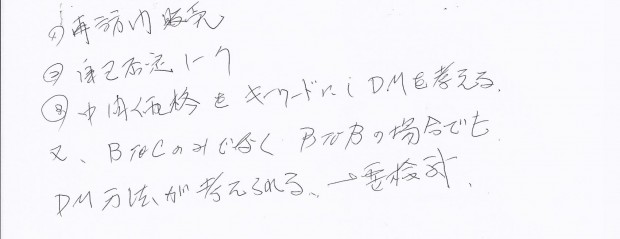 ① 再訪内販売
② 自己否定トーク
③ 中間価格をキーワードにしDMを考える.
又、BtoCのみでなくBtoBの場合でも
DM方法が考えられる、→要検討.